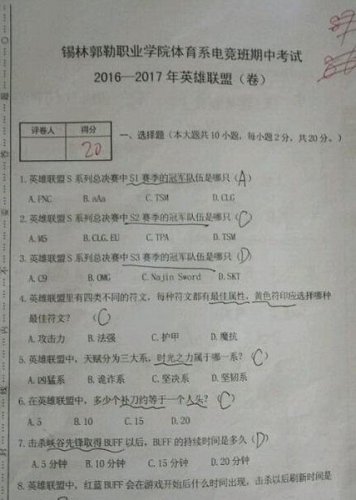 锡林郭勒职业学院体育系电竞班期中考试
2016—2017 年英雄联盟（卷）
评卷人 得分
20
一、选择题（本大题共 10 小题，每小题 2 分，共 20 分。）
1. 英雄联盟 S 系列总决赛中 S1 赛季的冠军队伍是哪只（A）
A. FNC B. aAa C. TSM D. CLG
2. 英雄联盟 S 系列总决赛中 S2 赛季的冠军队伍是哪只（C）
A. M5 B. CLG. EU C. TPA D. TSM
3. 英雄联盟 S 系列总决赛中 S3 赛季的冠军队伍是哪只（D）
A. C9 B. OMG C. Najin Sword D. SKT
4. 英雄联盟里有四类不同的符文，每种符文都有最佳属性，黄色符印应选择哪种
最佳符文？（C）
A. 攻击力 B. 法强 C. 护甲 D. 魔抗
5. 英雄联盟中，天赋分为三大系，时光之力属于哪一系？（C）
A. 凶猛系 B. 诡诈系 C. 坚决系 D. 坚韧系
6. 在英雄联盟中，多少个补刀约等于一个人头？（C）
A. 5 B. 10 C. 15 D. 20
7. 击杀峡谷先锋取得 BUFF 以后，BUFF 的持续时间是多久（D）
A. 5 分钟 B. 10 分钟 C. 15 分钟 D. 20 分钟
8. 英雄联盟中，红蓝 BUFF 会在游戏开始后什么时间出现，击杀以后刷新时间是